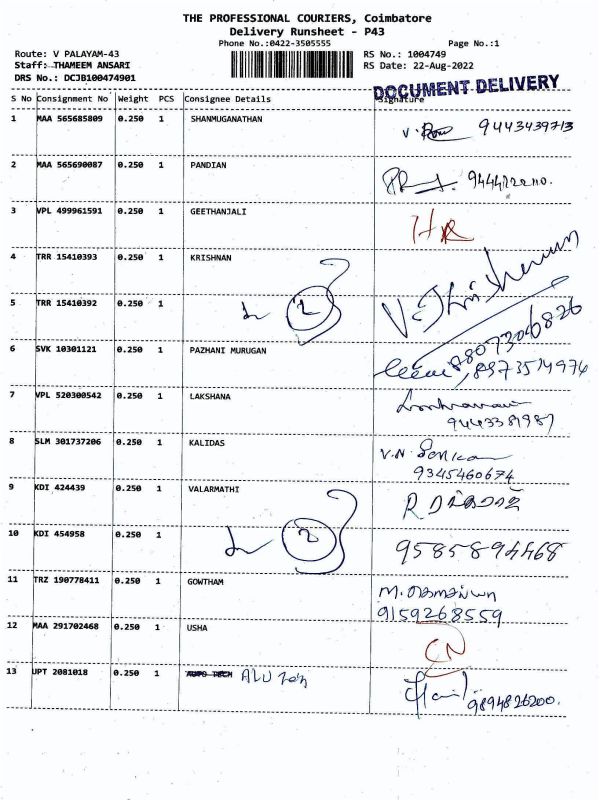 THE PROFESSIONAL COURIERS, Coimbatore
Delivery Runsheet - P43
Phone No.:0422-3505555
Page No.:1
Route: V PALAYAM-43
RS No.: 1004749
Staff: THAMEEM ANSARI
RS Date: 22-Aug-2022
DRS No.: DCJB100474901
DOCUMENT DELIVERY
S No Consignment No Weight PCS Consignee Details Signature
1 MAA 565685809 0.250 1 SHANMUGANATHAN 9443439713
2 MAA 565690087 0.250 1 PANDIAN
3 VPL 499961591 0.250 1 GEETHANJALI
4 TRR 15410393 0.250 1 KRISHNAN
5 TRR 15410392 0.250 1 2 8073006826
6 SVK 10301121 0.250 1 PAZHANI MURUGAN
7 VPL 520300542 0.250 1 LAKSHANA
8 SLM 301737206 0.250 1 KALIDAS V.N
9345460674
9 KDI 424439 0.250 1 VALARMATHI
10 KDI 454958 0.250 1 2 9585894468
11 TRZ 190778411 0.250 1 GOWTHAM
9159268559
12 MAA 291702468 0.250 1 USHA CN
13 UPT 2081018 0.250 1 AUTO TECH
9894826200.